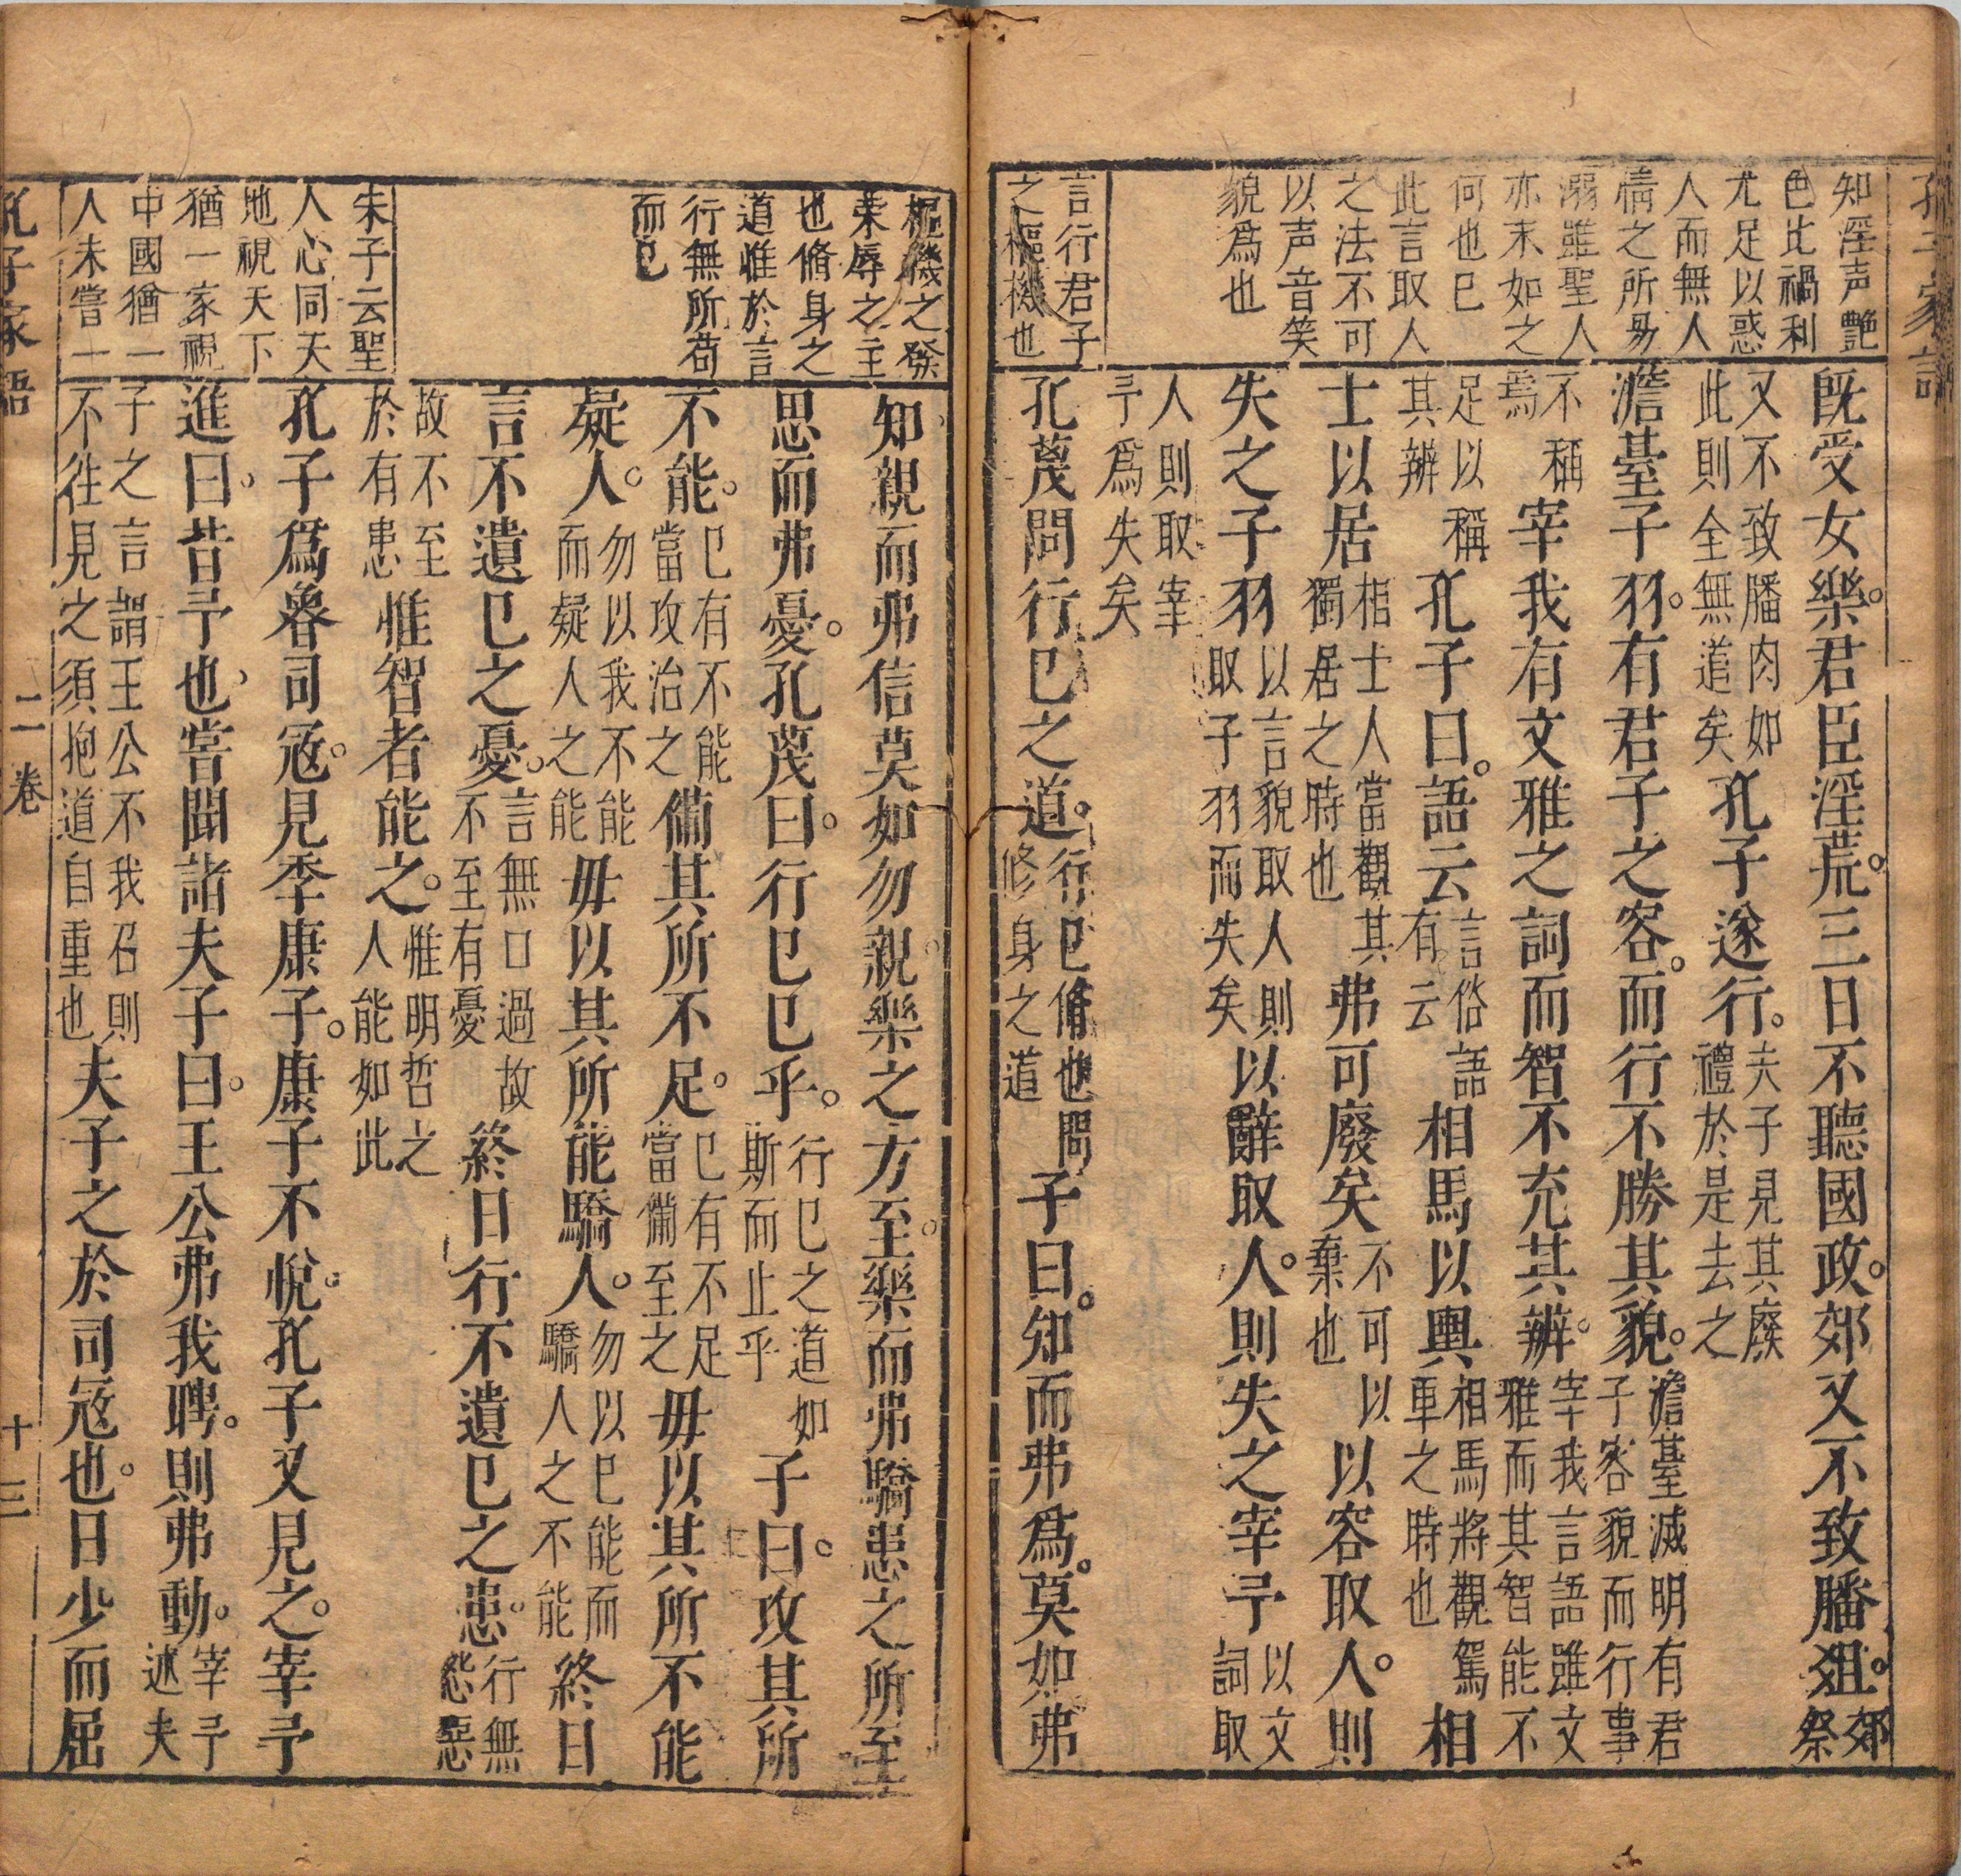 孔子家語
知淫声艷
色比禍利
尤足以惑
人而無人
情之所易
溺雖聖人
亦末如之
何也已
此言取人
之法不可
以声音笑
貌爲也
言行君子
之樞機也
既受女樂。君臣淫荒。三日不聽國政。郊又不致膰狙。郊祭
又不致膰肉如此則全無道矣孔子遂行。夫子見其廢禮於是去之
澹臺子羽。有君子之容。而行不勝其貌。澹臺滅明有君子容貌而行事
不稱焉宰我有文雅之詞而智不充其辨。宰我言語雖文雅而其智能不
足以稱其辨孔子曰。語云言俗語有云相馬以輿相馬將觀駕車之時也相
士以居相士人當觀其獨居之時也弗可廢矣不可以棄也以容取人。則
失之子羽以言貌取人則取子羽而失矣以辭取人。則失之宰予以文詞取
人則取宰予爲失矣
孔蔑問行己之道。行己脩也問修身之道子曰。知而弗爲。莫如弗
樞機之發
荣辱之主
也脩身之
道惟於言
行無所苟
而已
朱子云聖
人心同天
地視天下
猶一家視
中國猶一
人未嘗一
知親而弗信莫如勿親。樂之方至。樂而弗驕患之所至
思而弗憂。孔蔑曰。行己己乎。行己之道如斯而止乎子曰。攻其所
不能。己有不能當攻治之備其所不足。己有不足當備至之毋以其所不能
疑人。勿以我不能而疑人之能毋以其所能驕人。勿以己能而驕人之不能終日
言不遺己之憂。言無口過故不至有憂終日行不遺己之患。行無怨惡
故不至於有患惟智者能之。惟明哲之人能如此
孔子爲魯司寇。見季康子。康子不悅。孔子又見之。宰予
進曰。昔予也嘗聞諸夫子曰。王公弗我聘。則弗動。宰予述夫
子之言謂王公不我召則不徃見之須抱道自重也夫子之於司寇也。日少而屈
孔子家語
二卷
十三